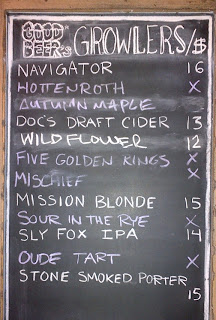 GOOD BEERS GROWLERS/$
NAVIGATOR 16
HOTTENROTH X
AUTUMN MAPLE
DOC'S DRAFT CIDER 13
WILDFLOWER 12
FIVE GOLDEN KINGS X
MISCHIEF X
MISSION BLONDE 15
SOUR IN THE RYE X
SLY FOX IPA 14
OUDE TART X
STONE SMOKED PORTER
15